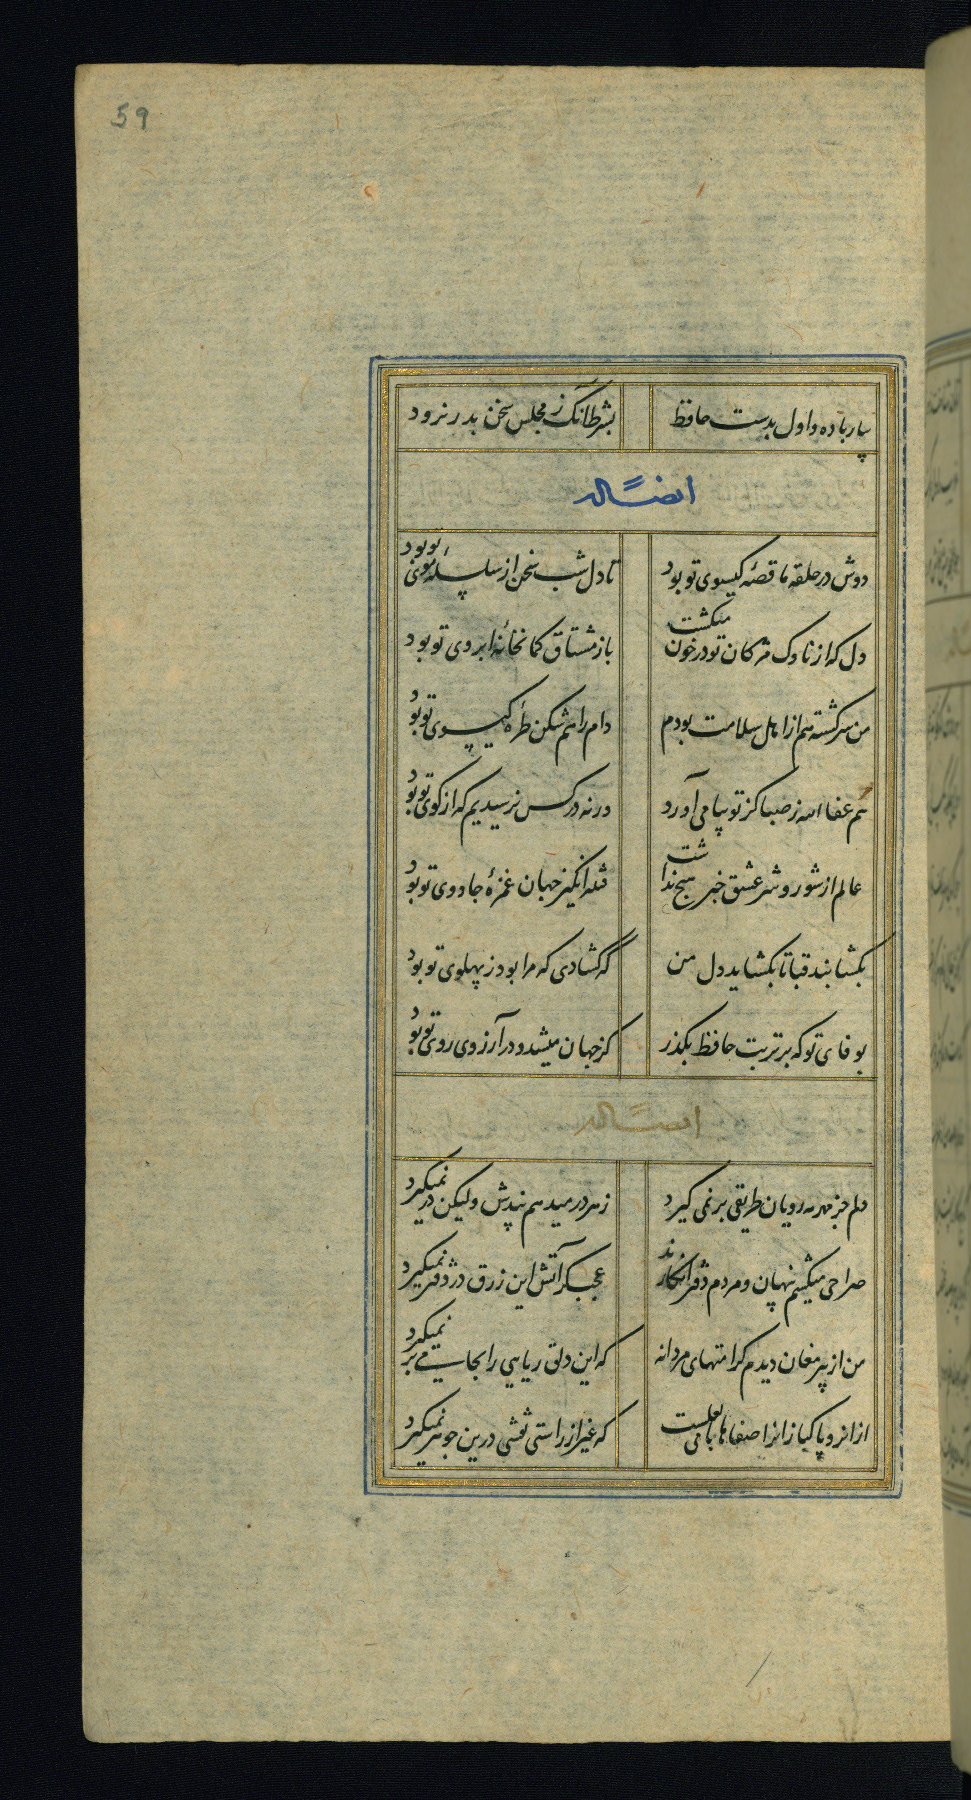 59
بیار باده و اول بدست حافظ بشرط آنک ز مجلس سخن بدر نرود
ایضًا له
دوش در حلقه ما قصهٔ کیسوی تو بود تا دل شب سخن از سلسلهٔ موی تو بود
دل که از ناوک مژکان تو در خون میکشت باز مشتاق کمانخانهٔ ابروی تو بود
من سرکشته هم از اهل سلامت بودم دام راهم شکن طرهٔ کیسوی تو بود
هم عفا الله ز صبا کز تو پیامی آورد ورنه در کس نرسیدیم که از کوی تو بود
عالم از شور و شر عشق خبر هیچ نداشت فتنه انکیز جهان غمزهٔ جادوی تو بود
بکشا بند قبا تا بکشاید دل من که کشادی که مرا بود ز پهلوی تو بود
بوفای تو که بر تربت حافظ بکذر کز جهان میشد و در آرزوی روی تو بود
ایضًا له
دلم جز مهر مه رویان طریقی بر نمی کیرد ز هر در میدهم پندش ولیکن در نمیکیرد
صراحی میکشم پنهان و مردم دفتر انکارند عجب کر آتش این زرق در دفتر نمیکیرد
من از پیر مغان دیدم کرامتهای مردانه که این دلق ریایی را بجامی بر نمیکیرد
از انرو پاکبازانرا صفاها با می لعلست که غیر از راستی نقشی درین جوهر نمیکیرد